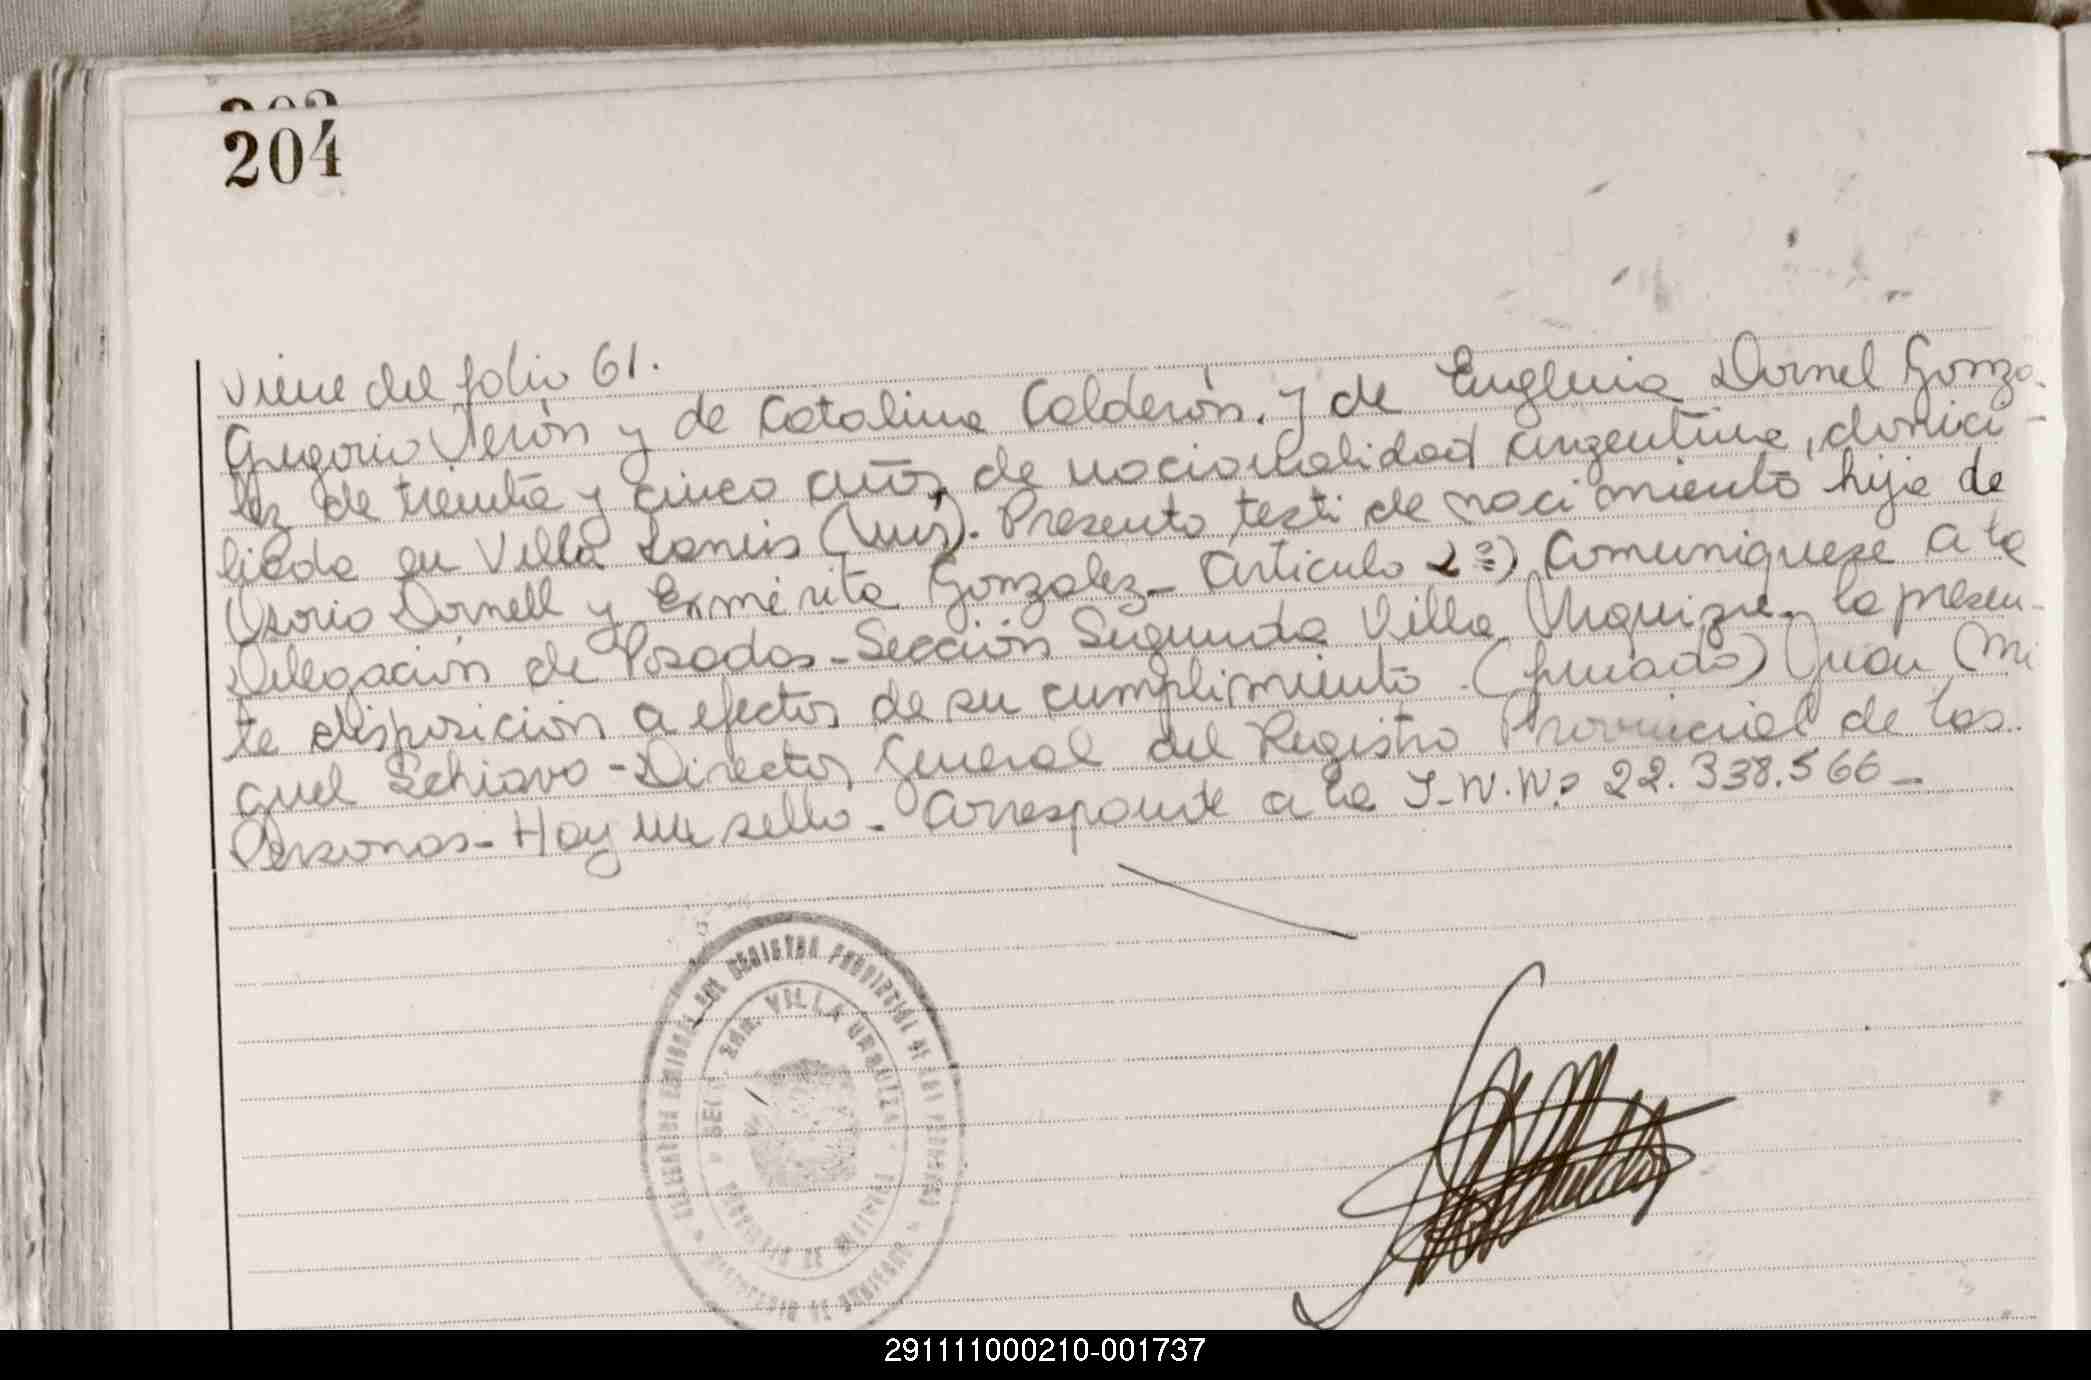 204
viene del folio 61.
Gregorio Verón y de Catalina Calderón. y de Euglenia Dornel Gonza-
lez de treinta y cinco años, de nacionalidad argentina, domici-
liada en Villa Lanús (Mns). Presento testi de nacimiento hija de
Osorio Dornell y Ermérita Gonzalez- Articulo 2º) Comuniquese a la
Delegación de Posadas-Sección Segunda Villa Urquiza. la presen-
te disposición a efectos de su cumplimiento. (firmado) Juan Mi
guel Schiavo-Director General del Registro Provincial de las
Personas- Hay un sello- Corresponde a la I-N.Nº 22.338.566-
DEL REGISTRO PROVINCIAL DE LAS PERSONAS
VILLA URQUIZA
291111000210-001737